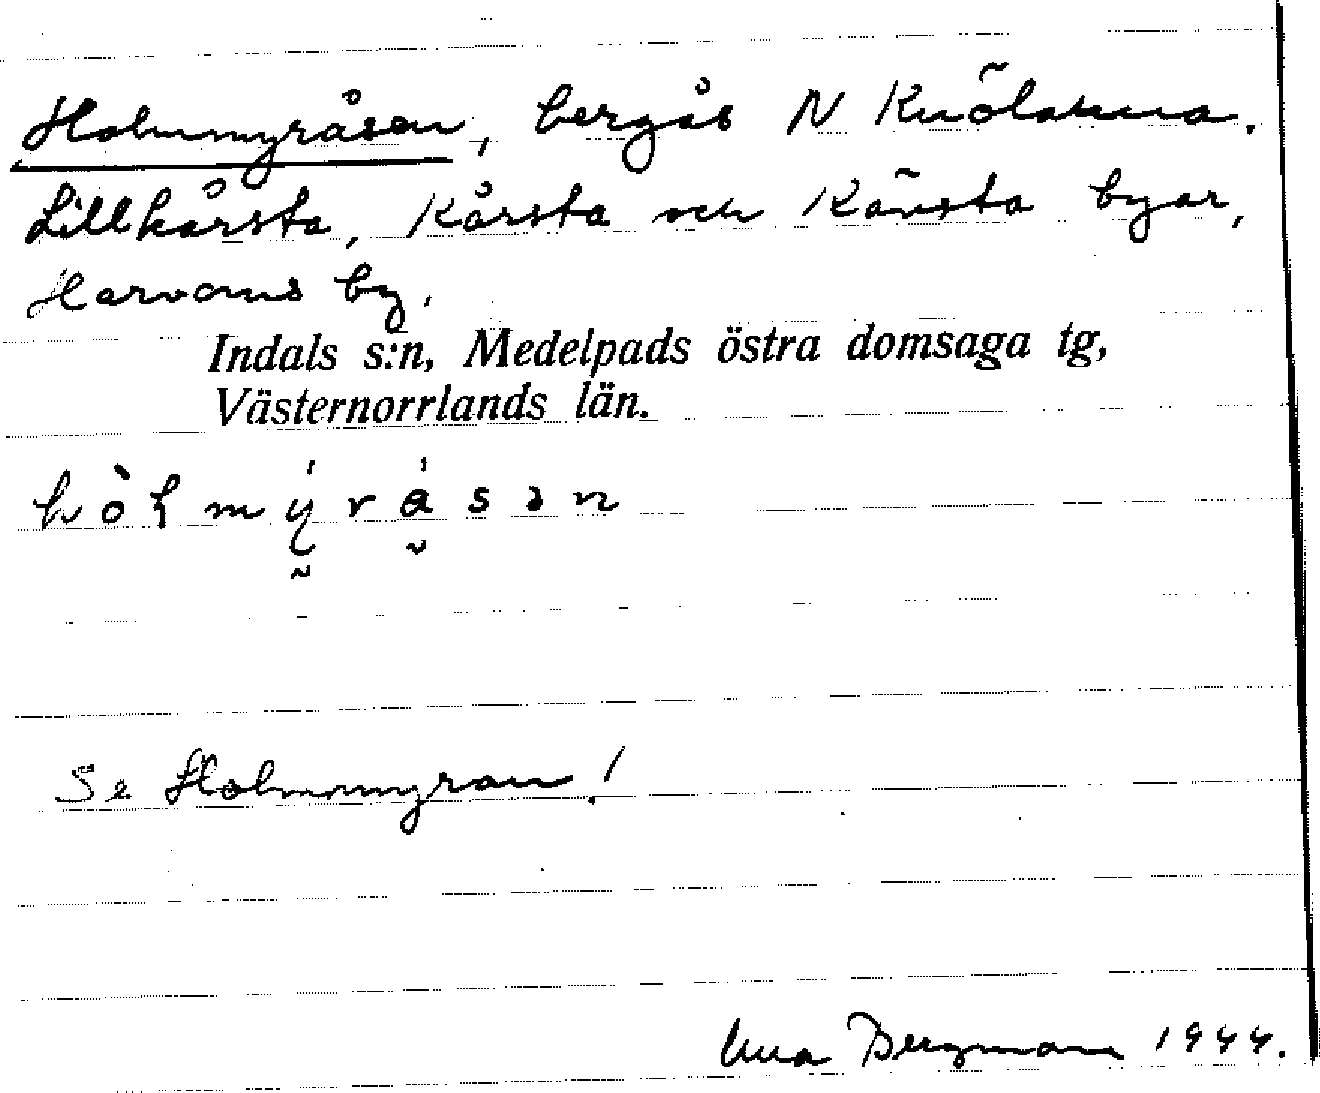 Holmmyråsen, bergås N Knölarna.
Lillkårsta, Kårsta och Kävsta byar,
Harvoms by.
Indals s:n, Medelpads östra domsaga tg,
Västernorrlands län.
Se Holmmyran!
Bergman 1944.